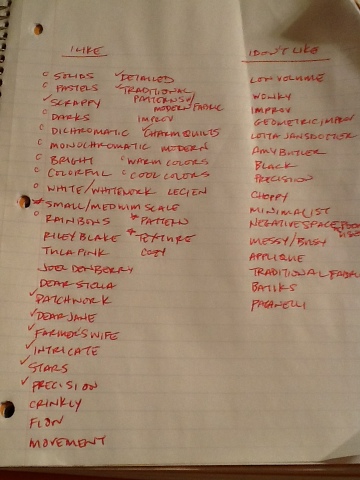 I LIKE
SOLIDS
PASTELS
SCRAPPY
DARKS
DICHROMATIC
MONOCHROMATIC
BRIGHT
COLORFUL
WHITE/WHITEWORK
SMALL/MEDIUM SCALE
RAINBOWS
RILEY BLAKE
TULA PINK
JOEL DEWBERRY
DEAR STELLA
PATCHWORK
DEAR JANE
FARMER'S WIFE
INTRICATE
STARS
PRECISION
CRINKLY
FLOW
MOVEMENT
DETAILED
TRADITIONAL
PATTERNS W/
MODERN FABRIC
IMPROV
CHARM QUILTS
MODERN
WARM COLORS
COOL COLORS
LECIEN
PATTERN
TEXTURE
COZY
I DON'T LIKE
LOW VOLUME
WONKY
IMPROV
GEOMETRIC IMPROV
LOTTA JANSDOTTER
AMY BUTLER
BLACK
PRECISION
CHOPPY
MINIMALIST
NEGATIVE SPACE
MESSY/BUSY
APPLIQUE
TRADITIONAL FABRIC
BATIKS
PAGANELLI